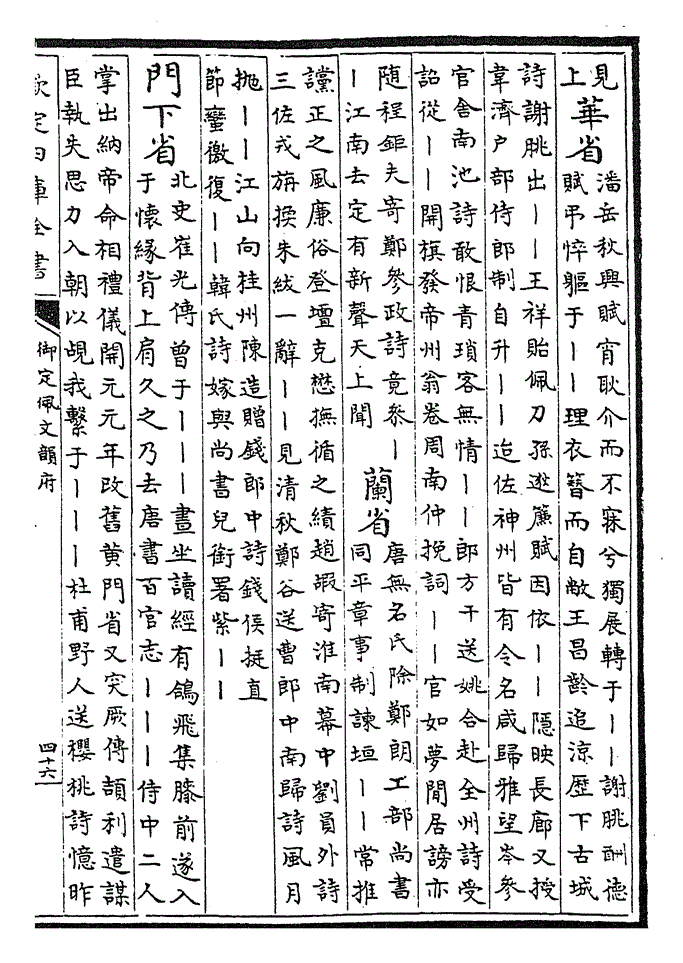 見
上
華省
潘岳秋興賦宵耿介而不寐兮獨展轉于丨丨謝朓酬德
賦弔悴軀于丨丨理衣簪而自敞王昌齡追涼歷下古城
詩謝朓出丨丨王祥貽佩刀孫逖簾賦因依丨丨隱映長廊又授
韋濟戶部侍郎制自升丨丨迨佐神州皆有令名咸歸雅望岑參
官舍南池詩敢恨青瑣客無情丨丨郎方干送姚合赴全州詩受
詔從丨丨開旗發帝州翁卷周南仲挽詞丨丨官如夢閒居謗亦
隨程鉅夫寄鄭參政詩竟參丨
丨江南去定有新聲天上聞
蘭省
唐無名氏除鄭朗工部尚書
同平章事制諫垣丨丨常推
讜正之風廉俗登壇克懋撫循之績趙嘏寄淮南幕中劉員外詩
三佐戎旃換朱紱一辭丨丨見清秋鄭谷送曹郎中南歸詩風月
拋丨丨江山向桂州陳造贈錢郎中詩錢侯挺直
節蠻徼復丨丨韓氏詩嫁與尚書兒銜署紫丨丨
門下省
北史崔光傳曾于丨丨丨晝坐讀經有鴿飛集膝前遂入
于懷緣背上肩久之乃去唐書百官志丨丨丨侍中二人
掌出納帝命相禮儀開元元年改舊黃門省又突厥傳頡利遣謀
臣執失思力入朝以覘我繫于丨丨丨杜甫野人送櫻桃詩憶昨
欽定四庫全書
御定佩文韻府
四十六